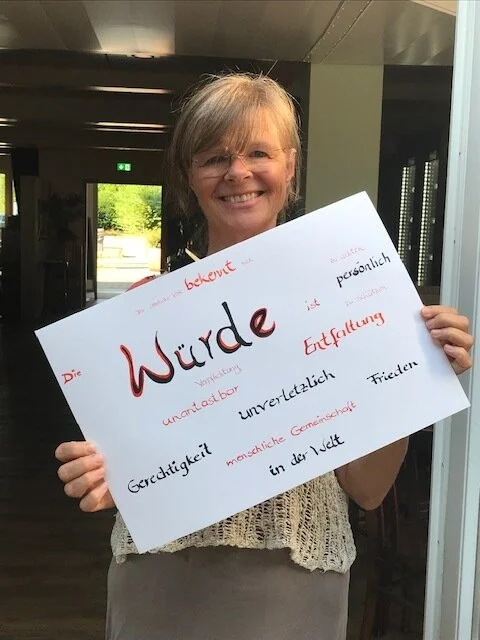 bekennt
persönlich
Die Würde ist
Entfaltung
Verpflichtung
unantastbar unverletzlich Frieden
Gerechtigkeit menschliche Gemeinschaft
in der Welt